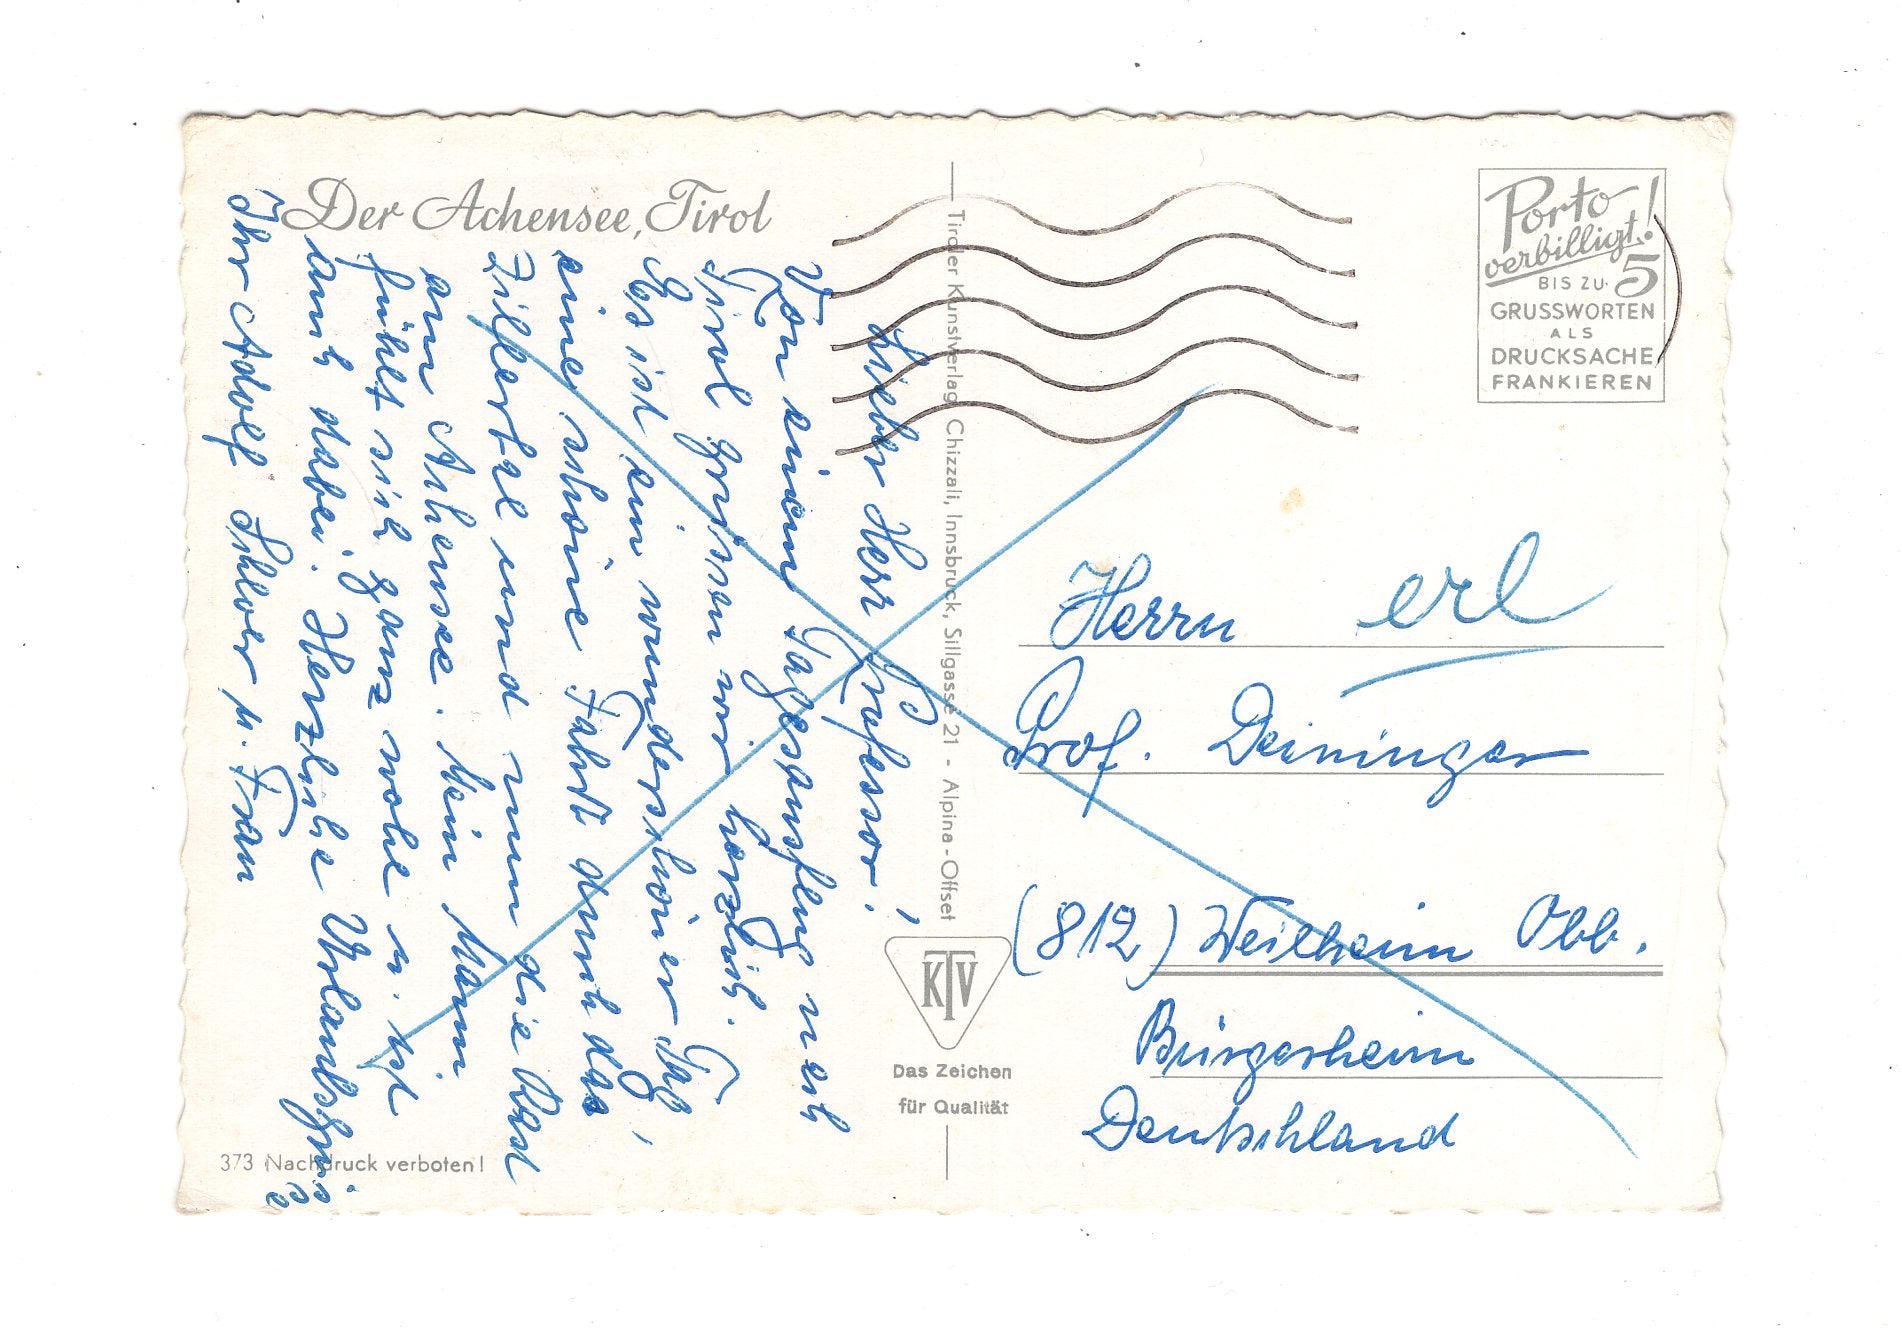 Der Achensee, Tirol
Lieber Herr Professor!
Von einem Tagesausflug nach
Tirol grüssen wir herzlich.
Es ist ein wunderschöner Tag,
eine schöne Fahrt durch das
Zillertal und nun die Rast
am Achensee. Mein Mann
fühlt sich ganz wohl u. ist
auch dabei. Herzliche Urlaubsgrüsse
Ihr Adolf u. Frau
373 Nachdruck verboten!
Tiroler Kunstverlag Chizzali, Innsbruck, Sillgasse 21 - Alpina-Offset
KTV
Das Zeichen
für Qualität
Porto
verbilligt!
BIS ZU 5
GRUSSWORTEN
ALS
DRUCKSACHE
FRANKIEREN
erl
Herrn
Prof. Deininger
(812) Weilheim Obb.
Bürgerheim
Deutschland